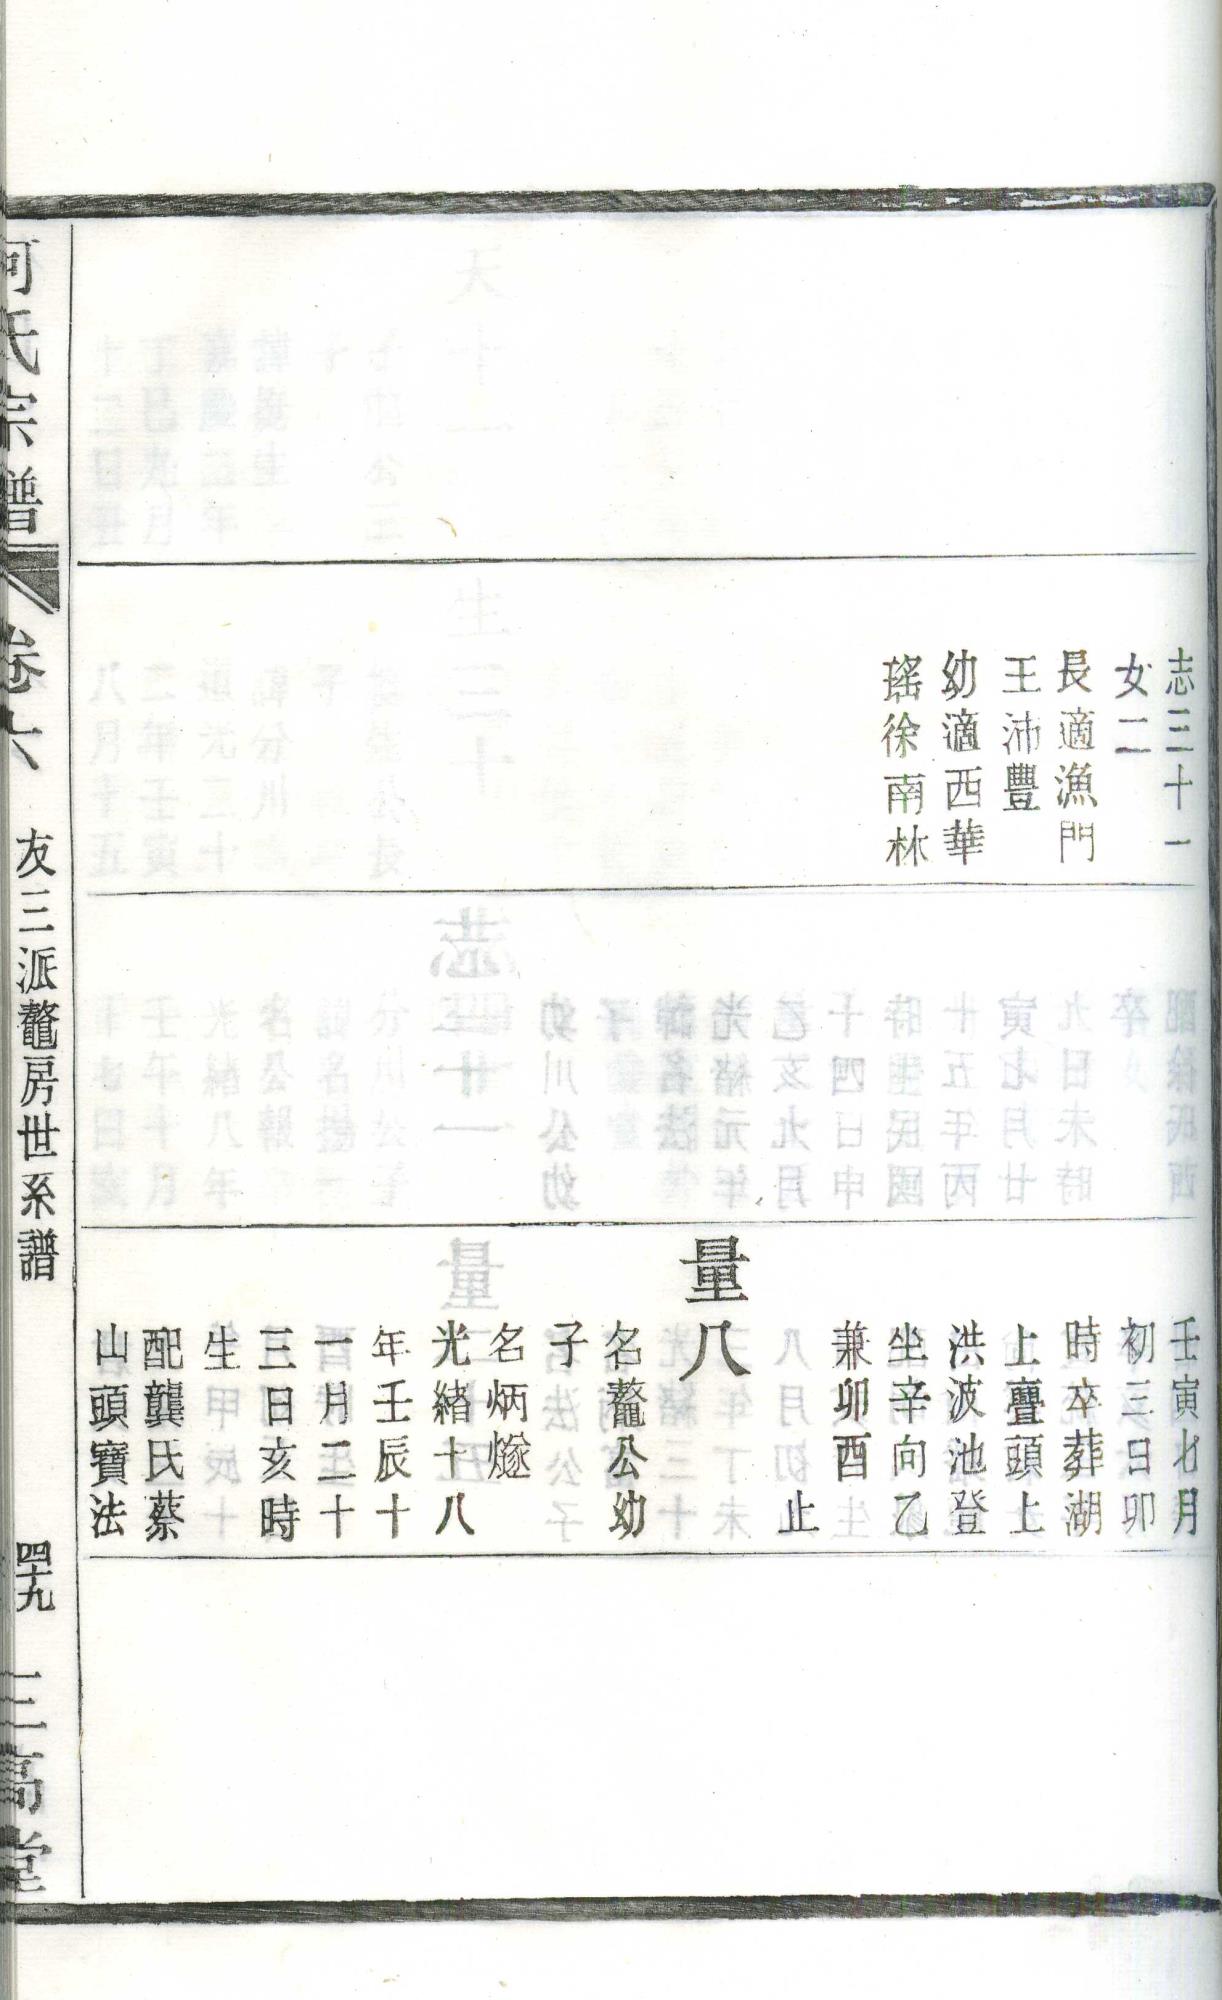 志三十一
女二
長適漁門
王沛豐
幼適西華
瑤徐南林
壬寅七月
初三日卯
時卒葬湖
上疊頭上
洪波池登
坐辛向乙
兼卯酉
止
量八
名鰲公幼
子
名炳燧
光緒十八
年壬辰十
一月二十
三日亥時
生
配龔氏蔡
山頭寶法
何氏宗譜
卷六
友三派鰲房世系譜
四十九
三高堂